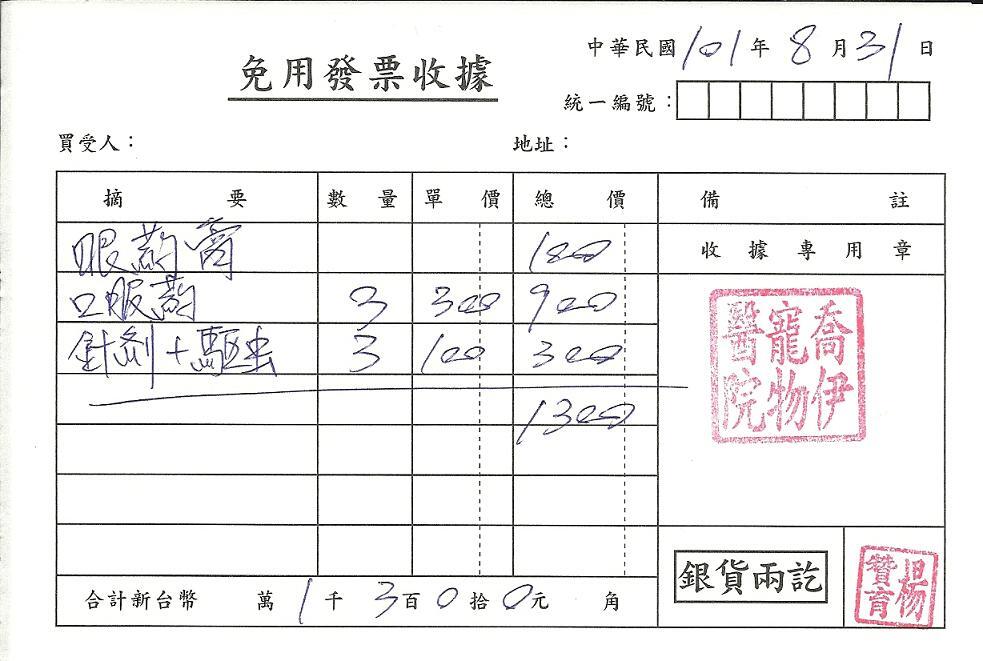 中華民國101年8月31日
免用發票收據
統一編號：
買受人：
地址：
摘要 數量 單價 總價 備註
眼葯膏 100
收據專用章
口服葯 3 300 900
針劑+驅虫 3 100 300
喬伊
寵物
醫院
1300
銀貨兩訖
楊
贊育
合計新台幣 萬1千3百0拾0元 角